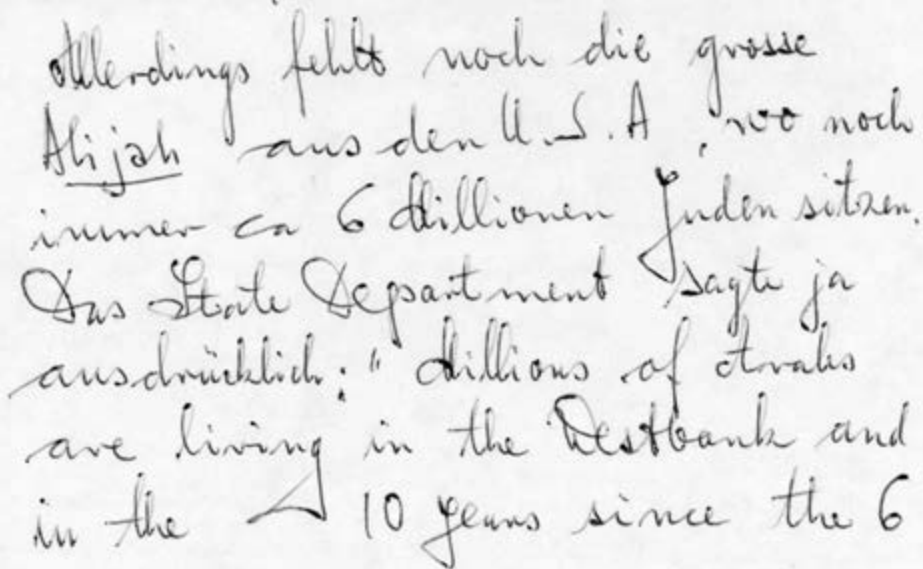 Allerdings fehlt noch die grosse
Alijah aus den U.S.A, wo noch
immer ca 6 Millionen Juden sitzen.
Das State Department sagte ja
ausdrücklich: "Millions of Arabs
are living in the Westbank and
in the 10 years since the 6